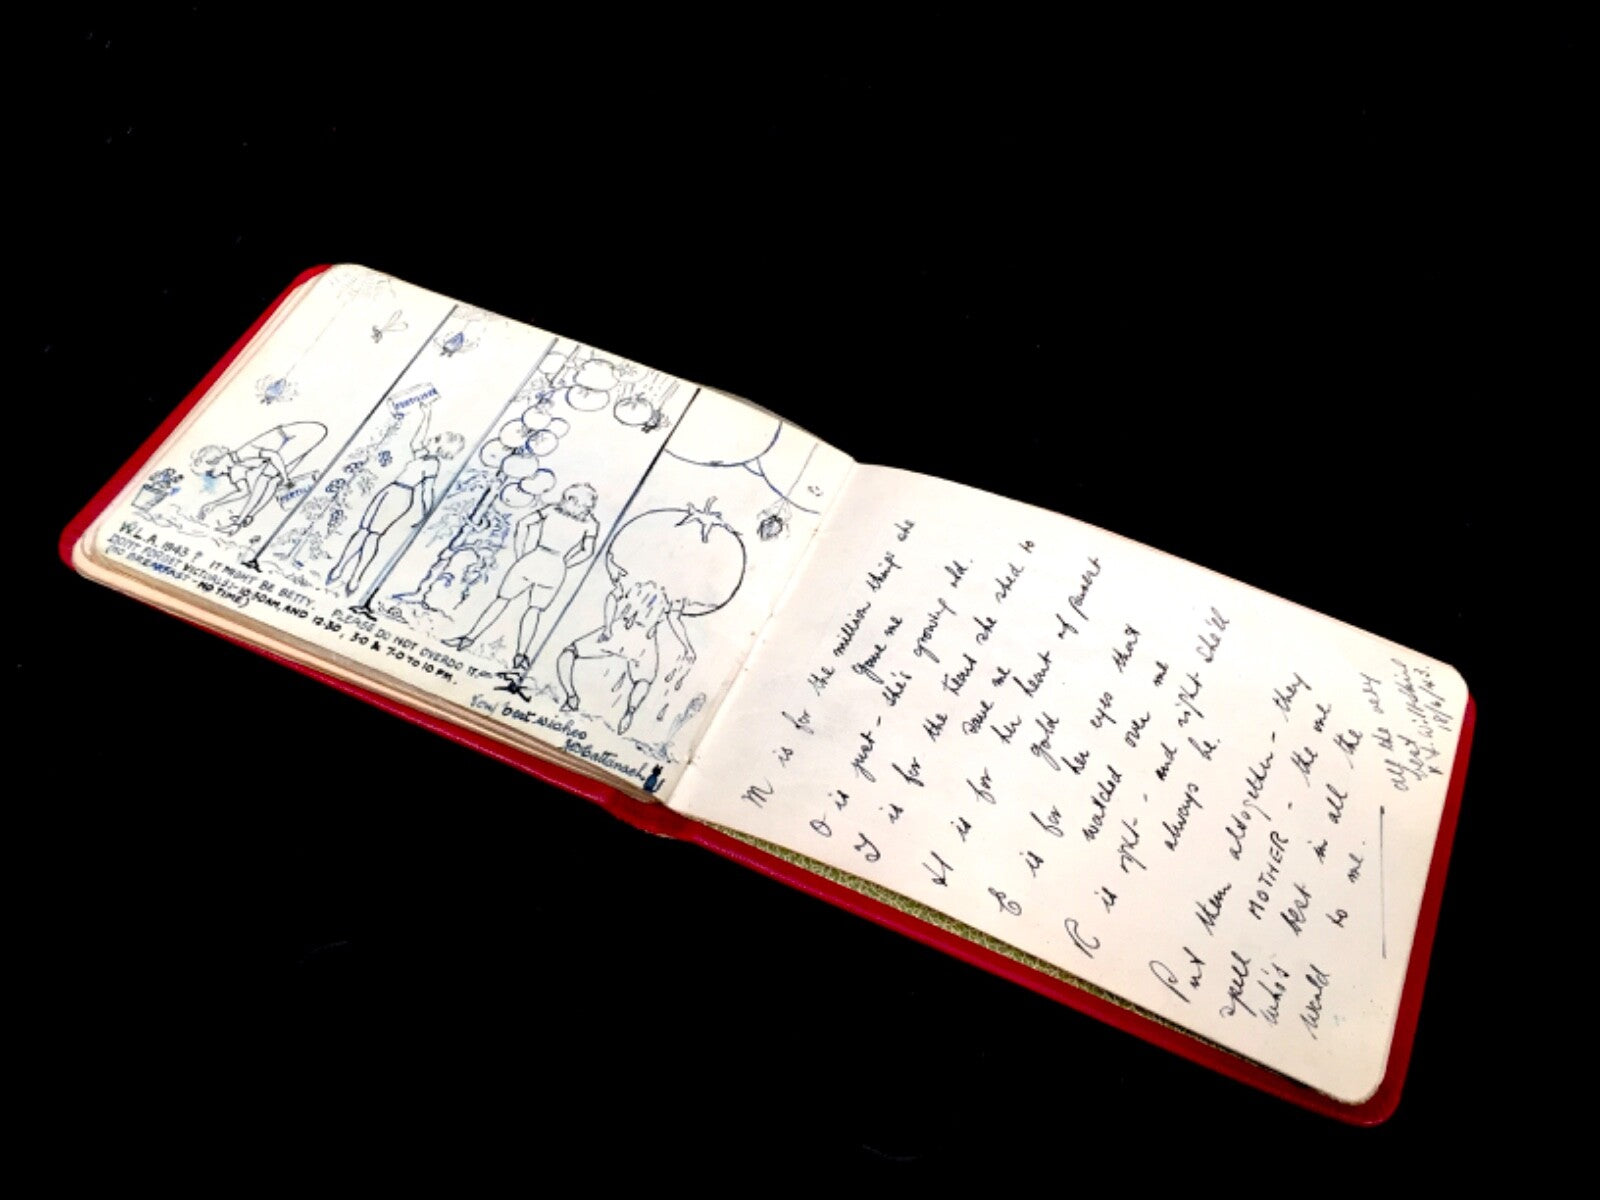 FERTILISER
W.L.A. 1943 ? IT MIGHT BE BETTY. PLEASE DO NOT OVERDO IT.
DON'T FORGET VICTUALS:- 10.30AM. AND 12.30, 3.0 & 7.0 TO 10 PM.
(NO BREAKFAST - NO TIME)
best wishes
M is for the million things she
gave me
O is just - she's growing old.
T is for the tears she shed to
save me
H is for her heart of purest
gold
E is for her eyes that
watched over me
R is right - and right she'll
always be.
Put them altogether - they
spell MOTHER - the one
who's best in all the
world to me.
All the very
best
18/6/43.